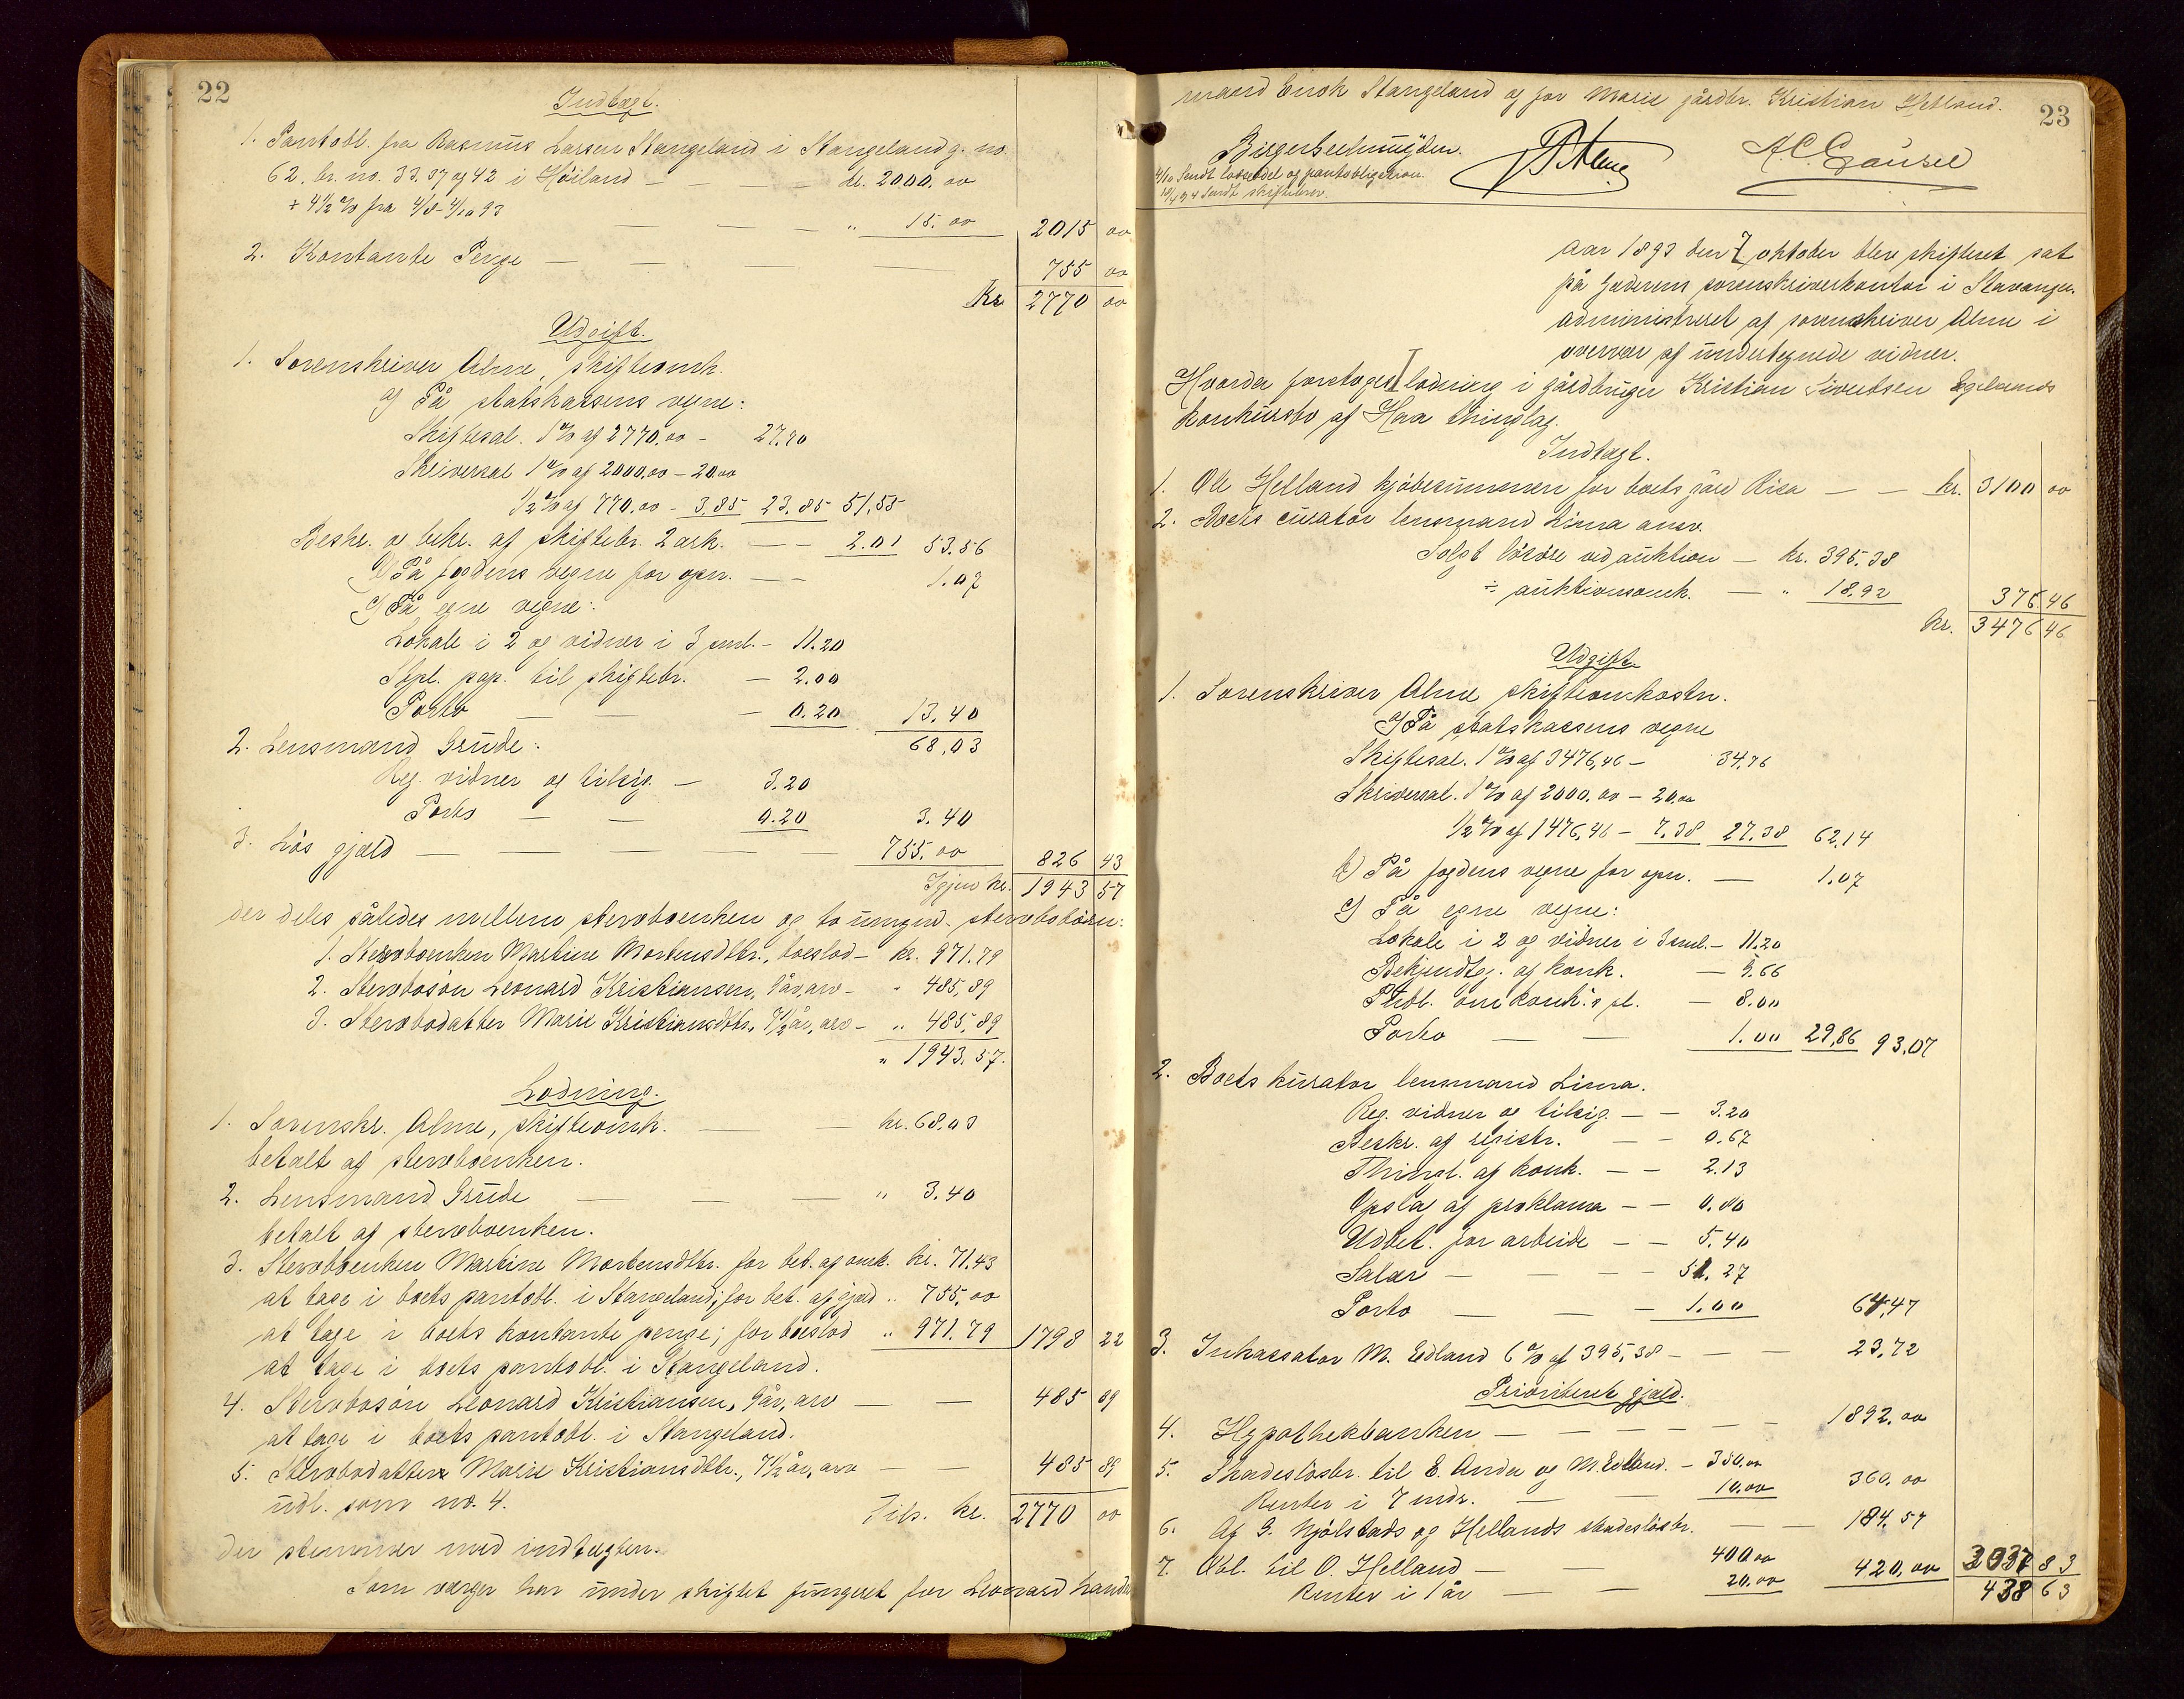 22
Indtægt.
1. Pantobl. fra Rasmus Larsen Stangeland i Stangeland g. no.
62. br. no. 33.37 og 42 i Höiland — — — kr. 2000.00
+ 4½ % fra 4/8-4/10 93 — — — " 15.00 2015 00
2. Kontante Penge — — — — 755 00
Kr 2770 00
Udgift.
1. Sorenskriver Alme, skifteomk.
a) På statskassens vegne:
Skiftesal. 1 % af 2770.00 - 27.70
Skriversal 1 % af 2000.00 - 20.00
½ % af 770.00 - 3.85 23.85 51.55
Beskr. og bekr. af skiftebr. 2 ark. — — 2.01 53.56
b) På fogdens vegne for opn. — — 1.07
c) På egne vegne:
Lokale i 2 og vidner i 3 saml. - 11.20
Stpl. pap. til skiftebr. — 2.00
Porto — — — 0.20 13.40
68.03
2. Lensmand Grude:
Reg. vidner og tilsig. — 3.20
Porto — — 0.20 3.40
3. Lös gjæld — — — — — 755.00 826 43
Igjen kr. 1943 57
der deles således mellem stervboenken og to umynd. stervbobörn:
1. Stervboenken Martine Mortensdttr., boeslod - kr. 971.79
2. Stervbosön Leonard Kristiansen, 9 år, arv - " 485,89
3. Stervbodatter Marie Kristiansdttr. 7½ år, arv - " 485,89
" 1943.57.
Lodning.
1. Sorenskr. Alme, skifteomk. — — kr. 68.03
betalt af stervboenken.
2. Lensmand Grude — — — " 3.40
betalt af stervboenken.
3. Stervboenken Martine Mortensdttr. for bet. af omk. kr. 71.43
at tage i boets pantobl. i Stangeland; for bet. af gjæld " 755,00
at tage i boets kontante penge; for boeslod " 971.79 1798 22
at tage i boets pantobl. i Stangeland.
4. Stervbosön Leonard Kristiansen, 9 år, arv — — 485 89
at tage i boets pantobl. i Stangeland.
5. Stervbodatter Marie Kristiansdttr., 7½ år, arv — — 485 89
udl. som no. 4. Tils. kr. 2770 00
der stemmer med indtægten.
Som værger har under skiftet fungeret for Leonard hands
23
mand Enok Stangeland og for Marie gårdbr. Kristian Hetland.
4/10 Sendt lodseddel og pantobligation.
Sendt skiftebrev.
Aar 1893 den 7 oktober blev skifteret sat
på Jæderens sorenskriverkontor i Stavanger.
administreret af sorenskriver Alme i
overvær af undertegnede vidner.
Hvorda foretoges lodning i gårdbruger Kristian Sivertsen Egelands
konkursbo af Haa thinglag.
Indtægt.
1. Ole Helland kjöbesummen for boets gård Risa — — kr. 3100 00
2. Boets curator lensmand Lima ansv.
Solgt lösöre ved auktion — kr. 395.38
÷ auktionsomk. — " 18,92 376 46
kr. 3476 46
Udgift.
1. Sorenskriver Alme skifteomkostn.
a) På statskassens vegne
Skiftesal. 1 % af 3476,46 - 34.76
Skriversal. 1 % af 2000.00 - 20.00
½ % af 1476,46 - 7.38 27.38 62.14
b) På fogdens vegne for opn. — 1.07
c) På egne vegne:
Lokale i 2 og vidner i 3 saml. - 11.20
Bekjendtg. af konk. — 9.66
Publ. om konk.'s sl. — 8.00
Porto — — 1.00 29,86 93.07
2. Boets kurator lensmand Lima.
Reg. vidner og tilsig. — — 3.20
Beskr. af registr. — — 0.67
Thingl. af konk. — — 2.13
Opslag af proklama — — 0.80
Udbet. for arbeide — — 5.40
Salær — — — 51.27
Porto — — — 1.00 64,47
3. Inkassator M. Edland 6 % af 395,38 — — — 23,72
Prioritert gjæld.
4. Hypothekbanken — — — — — 1892.00
5. Skadeslösbr. til E. Anda og M. Edland. - 350.00
Renter i 7 mdr. — — 10.00 360.00
6. Af G. Njölstads og Hellands skadeslösbr. — — 184.57
7. Obl. til O. Helland — — 400.00
Renter i 1 år — — 20.00 420.00 3037 83
438 63